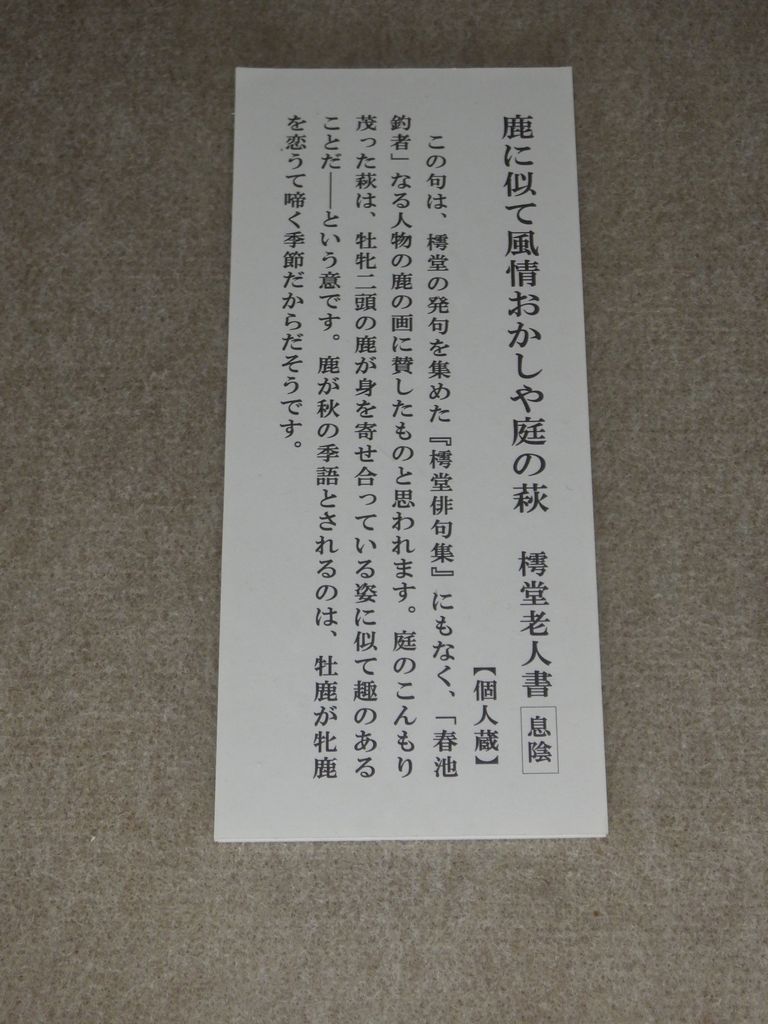 鹿に似て風情おかしや庭の萩　樗堂老人書 息陰
【個人蔵】
この句は、樗堂の発句を集めた『樗堂俳句集』にもなく、「春池
釣者」なる人物の鹿の画に賛したものと思われます。庭のこんもり
茂った萩は、牡牝二頭の鹿が身を寄せ合っている姿に似て趣のある
ことだ――という意です。鹿が秋の季語とされるのは、牡鹿が牝鹿
を恋うて啼く季節だからだそうです。